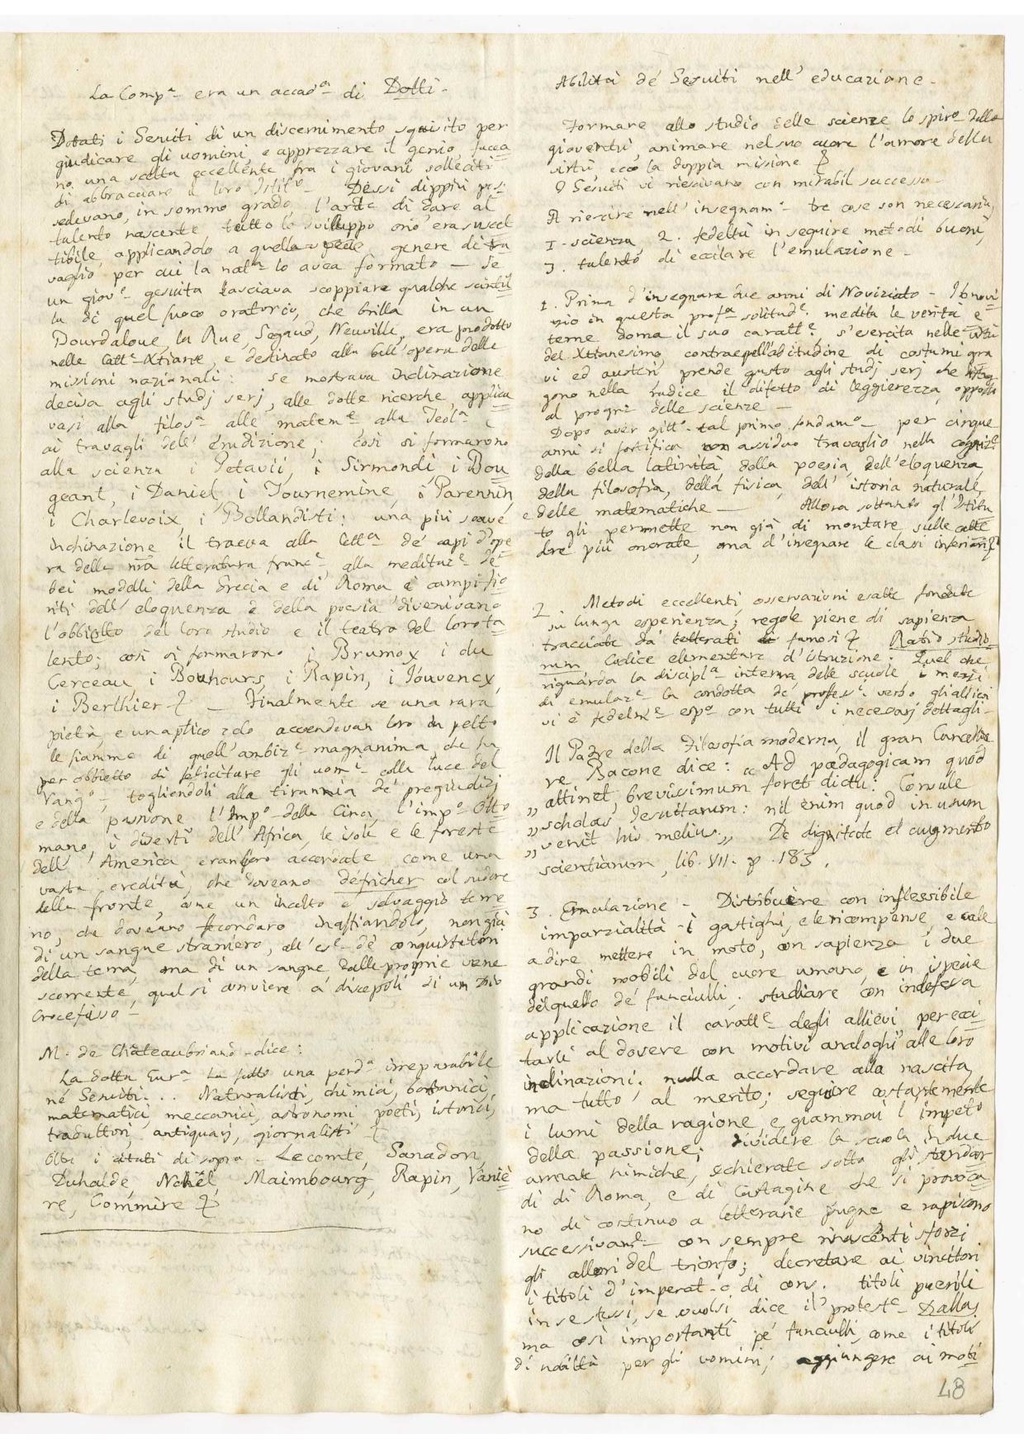 La Comp.ª era un accad.ª di Dotti.
Dotati i Gesuiti di un discernimento squisito per
giudicare gli uomini, e apprezzare il genio, facea
no una scelta eccellente fra i giovani solleciti
di abbracciare il loro Istit.º Dessi dippiù pos=
sedevano, in sommo grado l'arte di dare al
talento nascente tutto lo sviluppo ond'era suscet
tibile, applicandolo a quella genere di tra
vaglio per cui la nat.ª lo avea formato — Se
un giov.e gesuita lasciava scoppiare qualche scintil
la di quel fuoco oratorio, che brilla in un
Bourdaloue, la Rue, Segaud, Neuville, era prodotto
nelle Catt.e Xtiane, e destinato alla bell'opera delle
missioni nazionali: se mostrava inclinazione
decisa agli studj serj, alle dotte ricerche, applica
vasi alla filos.ª alle matem.e alla Teol.ª
ai travagli dell'erudizione; così si formarono
alla scienza i Petavii, i Sirmondi i Bou
geant, i Daniel, i Tournemine, i Parennin
i Charlevoix i Bollandisti: una più soave
inclinazione il traeva alla lett.ª de' capi d'ope
ra della letteratura franc.e alla meditaz.e de'
bei modelli della Grecia e di Roma e i campi fio
riti dell'eloquenza e della poesia divenivano
l'obbietto del loro studio e il teatro del loro ta
lento; così si formarono i Brumoy i du
Cerceau i Bouhours, i Rapin, i Jouvency,
i Berthier — Finalmente se una rara
pietà, e un aptico zelo accendevan loro in petto
le fiamme di quell'ambiz.e magnanima, che ha
per obbietto di felicitare gli uom.i colla luce del
Vang.o togliendoli alla tirannia de' pregiudizj
e della passione l'Imp.o della Cina, l'imp.o Otto
mano, i diserti dell'Africa, le isole e le foreste
dell'America eran loro accordate come una
vasta eredità, che doveano defricher col sudore
della fronte, come un incolto e selvaggio terre
no, che doveano fecondare inaffiandolo, non già
di un sangue straniero, all'es.o de' conquistatori
della terra, ma di un sangue dalle proprie vene
scorrente, qual si conviene a' discepoli di un Dio
Crocefisso —
M. de Châteaubriand dice:
La dotta Eur.ª ha fatto una perd.ª irreparabile
ne' Gesuiti... Naturalisti, chimici, botanici,
matematici, meccanici, astronomi poeti, istorici,
traduttori, antiquarj, giornalisti
Oltre i citati di sopra — Lecomte, Sanadon,
Duhalde, Noël, Maimbourg, Rapin, Vaniè
re, Commire
Abilità de' Gesuiti nell'educazione —
Formare allo studio delle scienze lo spir.o della
gioventù, animare nel suo cuore l'amore della
virtù ecco la doppia missione
I Gesuiti vi riescivano con mirabil successo —
A riescire nell'insegnam.o tre cose son necessarie,
1. scienza, 2. fedeltà in seguire metodi buoni,
3. talento di eccitare l'emulazione —
1. Prima d'insegnare due anni di Noviziato — Il novi
zio in questa prof.ª solitud.e medita le verità e
terne doma il suo caratt.e, s'esercita nelle virtù
del Xtianesimo, contrae nell'abitudine di costumi gra
vi ed austeri prende gusto agli studj serj che distrug
gono nella radice il difetto di leggierezza opposto
al progr.o delle scienze —
Dopo aver gitt.o tal primo fondam.o per cinque
anni si fortifica con assiduo travaglio nella cogniz.e
della bella latinità della poesia, dell'eloquenza,
della filosofia, della fisica, dell'istoria naturale,
e delle matematiche — Allora soltanto gl'Istitu
to gli permette non già di montare sulle catte
dre più onorate, ma d'insegnare le classi inferiori
2. Metodi eccellenti osservazioni esatte fondate
su lunga esperienza; regole piene di sapienza
tracciate da letterati famosi Ratio studio
rum Codice elementare d'Istruzione: Quel che
riguarda la discipl.ª interna delle scuole, i mezzi
di emulaz.e la condotta de' profess.i verso gli allievi
vi è fedelm.e esp.o con tutti i necessarj dettagli —
Il Padre della Filosofia moderna, il gran Cancellie
re Bacone dice: "Ad pædagogicam quod
" attinet brevissimum foret dictu: Consule
" scholas Jesuitarum: nil enim quod in usum
" venit his melius " De dignitate et augmento
scientiarum, lib. VII. p. 183.
3. Emulazione — Distribuire con inflessibile
imparzialità i gastighi, e le ricompense, e vale
a dire mettere in moto, con sapienza i due
grandi mobili del cuore umano, e in ispecie
di quello de' fanciulli; studiare con indefessa
applicazione il caratt.e degli allievi per ecci
tarli al dovere con motivi analoghi alle loro
inclinazioni; nulla accordare alla nascita,
ma tutto al merito; seguire costantemente
i lumi della ragione, e giammai l'impeto
della passione; dividere la scuola in due
armate nimiche, schierate sotto gli stendar
di di Roma, e di Cartagine che si provoca
no di continuo a letterarie pugne e rapiscono
successivam.e con sempre rinascenti sforzi
gli allori del trionfo; decretare ai vincitori
i titoli d'imperat. o di cons. titoli puerili
in se stessi, se vuolsi dice il protest.e Dallas,
ma così importanti pe' fanciulli, come i titoli
di nobiltà per gli uomini; aggiungere ai moti
48